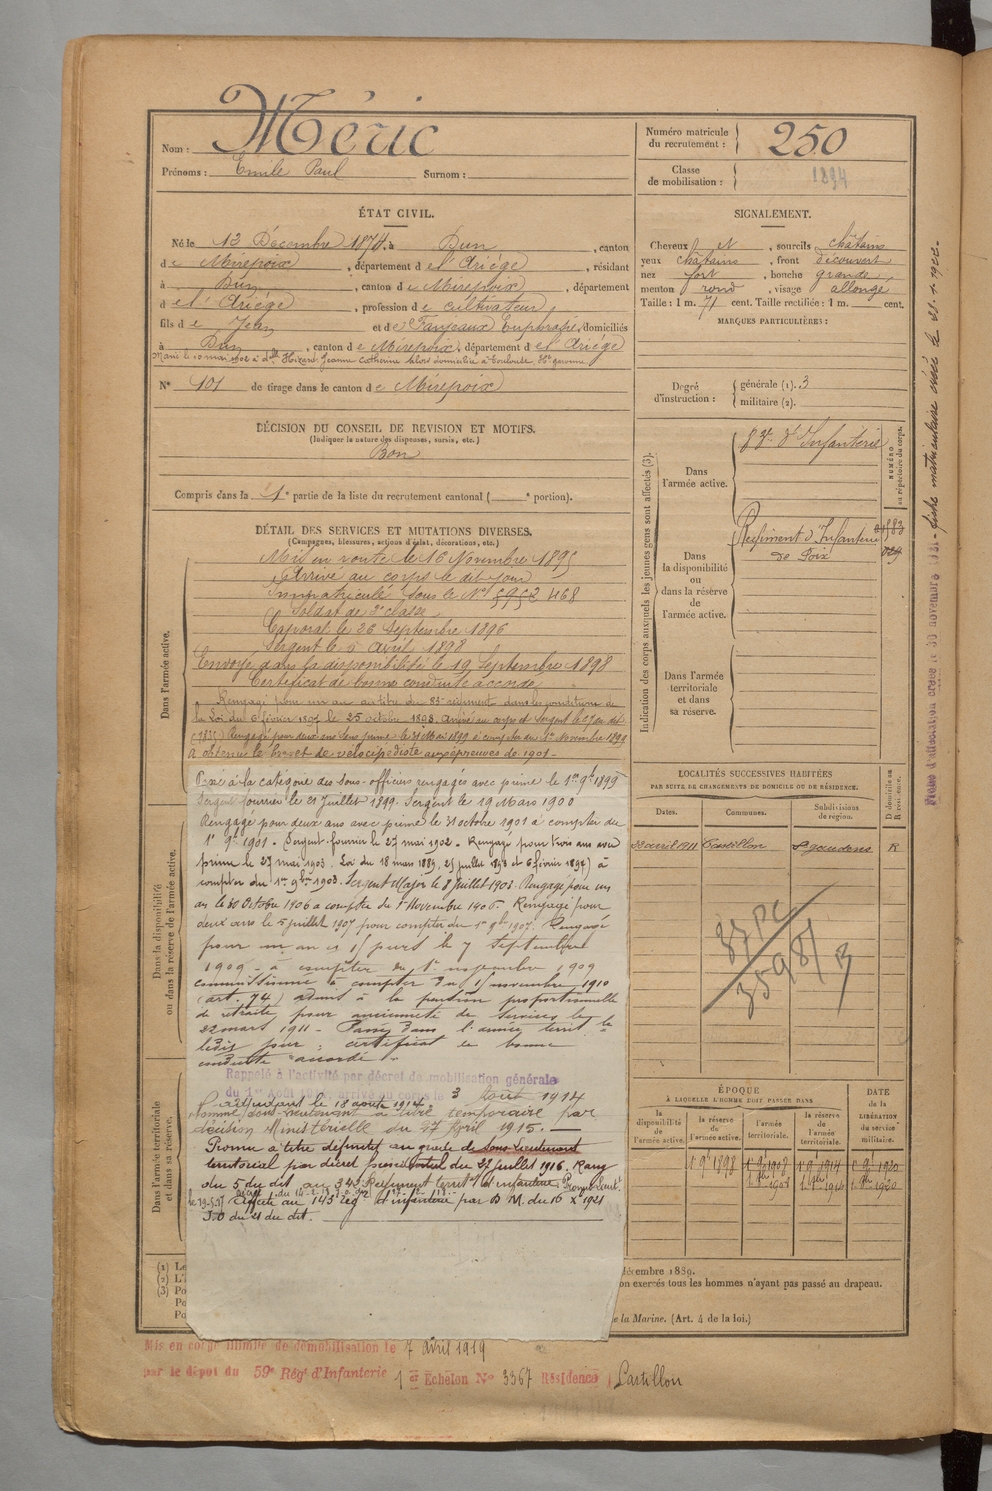 Nom : Méric
Prénoms : Emile Paul Surnom :
Numéro matricule du recrutement : 250
Classe de mobilisation : 1894
ÉTAT CIVIL.
Né le 13 Décembre 1874, à Dun, canton
de Mirepoix, département de l'Ariège, résidant
à Dun, canton de Mirepoix, département
de l'Ariège, profession de cultivateur,
fils de Jean et de Fanjeaux Euphrasie, domiciliés
à Dun, canton de Mirepoix, département de l'Ariège
Marié le 10 mai 1902 à dlle Hizard Jeanne Catherine domiciliée à Toulouse, Hte garonne
N° 101 de tirage dans le canton de Mirepoix
SIGNALEMENT.
Cheveux et, sourcils châtains
yeux châtains, front découvert
nez fort, bouche grande
menton rond, visage allongé
Taille : 1 m. 71 cent. Taille rectifiée : 1 m. cent.
MARQUES PARTICULIÈRES :
Degré d'instruction : générale (1). 3
militaire (2).
DÉCISION DU CONSEIL DE REVISION ET MOTIFS.
(Indiquer la nature des dispenses, sursis, etc.)
Bon
Compris dans la 1e partie de la liste du recrutement cantonal ( e portion).
DÉTAIL DES SERVICES ET MUTATIONS DIVERSES.
(Campagnes, blessures, actions d'éclat, décorations, etc.)
Dans l'armée active.
Mis en route le 16 Novembre 1895
Arrivé au corps le dit jour
Immatriculé sous le N° 5952 468
Soldat de 2e classe
Caporal le 26 Septembre 1896
Sergent le avril 1898
Envoyé dans la disponibilité le 19 Septembre 1898
Certificat de bonne conduite accordé
Rengagé pour un an au titre du 83e régiment dans les conditions de
la loi du 6 février 1897 le 25 octobre 1898 arrivé au corps et Sergent le 27 du dit
Rengagé pour deux ans sans prime le 1899 à compter du 1er Novembre 1899
A obtenu le brevet de vélocipédiste aux épreuves de 1901
à la catégorie des sous-officiers rengagés avec prime le 1er 9bre 1899
Sergent fourrier le 21 Juillet 1899. Sergent le 19 Mars 1900
Rengagé pour deux ans avec prime le 31 octobre 1901 à compter du
1er 9bre 1901. Sergent-fourrier le 27 mai 1902. Rengagé pour trois ans avec
prime le 27 mai 1903. Loi du 18 mars 1889, 25 juillet 1893 et 6 février 1897) à
compter du 1er 9bre 1903. Sergent Major le 8 Juillet 1903. Rengagé pour un
an le 30 Octobre 1906 à compter du 1er Novembre 1906. Rengagé pour
deux ans le 5 juillet 1907 pour compter du 1er 9bre 1907. Rengagé
pour un an et 1 jour le 7 Septembre
1909 à compter du 1er novembre 1909
commissionné à compter du 1er novembre 1910
(art. 74) admis à la pension proportionnelle
de retraite pour ancienneté de services le
22 mars 1911 - Passé dans l'armée territ le
dit jour ; certificat de bonne
conduite "accordé".
Dans la disponibilité ou dans la réserve de l'armée active.
Dans l'armée territoriale et dans sa réserve.
Rappelé à l'activité par décret de mobilisation générale
du 1er Août 1914, arrivé au corps le 3 Août 1914
Adjudant le 18 août 1914.
nommé sous-lieutenant à titre temporaire par
décision Ministérielle du 27 Avril 1915.
Promu à titre définitif au grade de sous-lieutenant
territorial par décret présidentiel du 27 juillet 1916. Rang
du 5 du dit au Régiment territ d'infanterie. Promu Lieut.
Affecté au 143e Rég t d'infanterie par D. M. du 16 Xbre 1921
J.O du 21 du dit.
Indication des corps auxquels les jeunes gens sont affectés (3).
Dans l'armée active.
83e d'Infanterie
NUMÉRO au répertoire du corps.
Dans la disponibilité ou dans la réserve de l'armée active.
Régiment d'Infanterie
de Foix
Dans l'armée territoriale et dans sa réserve.
LOCALITÉS SUCCESSIVES HABITÉES
PAR SUITE DE CHANGEMENTS DE DOMICILE OU DE RÉSIDENCE.
Dates. Communes. Subdivisions de région. D domicile ou R résidence.
23 avril 1911 Castillon St gaudens R
37 PC
3598/ 3
ÉPOQUE
À LAQUELLE L'HOMME DOIT PASSER DANS
DATE de la LIBÉRATION du service militaire.
la disponibilité de l'armée active. la réserve de l'armée active. l'armée territoriale. la réserve de l'armée territoriale.
1er 9bre 1898 1er 9bre 1908 1er 9bre 1914 1er 9bre 1920
1er 9bre 1908 1er 9bre 1914 1er 9bre 1920
(1) Le
(2) L'
(3) Po
décembre 1889.
on exercés tous les hommes n'ayant pas passé au drapeau.
de la Marine. (Art. 4 de la loi.)
Mis en congé illimité de démobilisation le 7 avril 1919
par le dépôt du 59e Régt d'Infanterie 1er Echelon N° 3367 Résidence Castillon